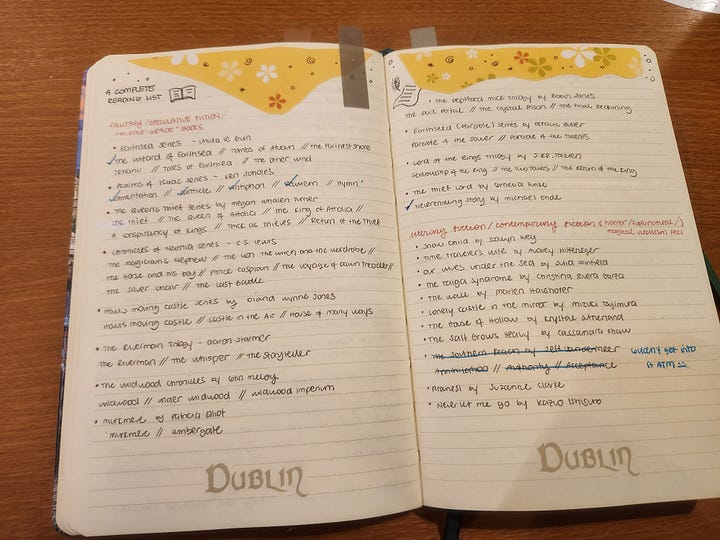 A COMPLETE
READING LIST
FANTASY / SPECULATIVE FICTION /
"MIDDLE-GRADE" BOOKS
• Earthsea series - Ursula le Guin
✓ The Wizard of Earthsea // Tombs of Atuan // The Farthest Shore
Tehanu // Tales of Earthsea // The Other Wind
• Psalms of Isaak series - Ken Scholes
✓ Lamentation // ✓ Canticle // ✓ Antiphon // ✓ Requiem // Hymn
• The Queen's Thief series by Megan Whalen Turner
The Thief // The Queen of Attolia // The King of Attolia //
A Conspiracy of Kings // Thick as Thieves // Return of the Thief
• Chronicles of Narnia series - C.S. Lewis
The Magician's Nephew // The Lion The Witch and the Wardrobe //
The Horse and his Boy // Prince Caspian // The Voyage of Dawn Treader //
The Silver Chair // The Last Battle
• Howl's Moving Castle series by Diana Wynne Jones
Howl's Moving Castle // Castle in the Air // House of Many Ways
• The Riverman Trilogy - Aaron Starmer
The Riverman // The Whisper // The Storyteller
• The Wildwood Chronicles by Colin Meloy
Wildwood // Under Wildwood // Wildwood Imperium
• Murkmere by Patricia Elliot
Murkmere // Ambergate
DUBLIN
• The Peppard Mice Trilogy by Robin Jarvis
The Dark Portal // The Crystal Prison // The Final Reckoning
• Earthseed (Parable) series by Octavia Butler
Parable of the Sower // Parable of the Talents
• Lord of the Rings Trilogy by J.R.R. Tolkien
Fellowship of the Ring // The Two Towers // The Return of the King
• The Thief Lord by Cornelia Funke
✓ Neverending Story by Michael Ende
Literary fiction / contemporary fiction (horror / supernatural /
magical realism feel)
• Snow Child by Eowyn Ivey
• Time Traveler's Wife by Audrey Niffenegger
• Our Wives Under the Sea by Julia Armfield
• The Taiga Syndrome by Christina Rivera Garza
• The Wall by Marlen Haushofer
• Lonely Castle in the Mirror by Mizuki Tsujimura
• The House of Hollow by Krystal Sutherland
• The Salt Grows Heavy by Cassandra Khaw
• The Southern Reach by Jeff Vandermeer
Annihilation // Authority // Acceptance
couldn't get into
it ATM
• Piranesi by Suzanne Clarke
• Never Let Me Go by Kazuo Ishiguro
DUBLIN